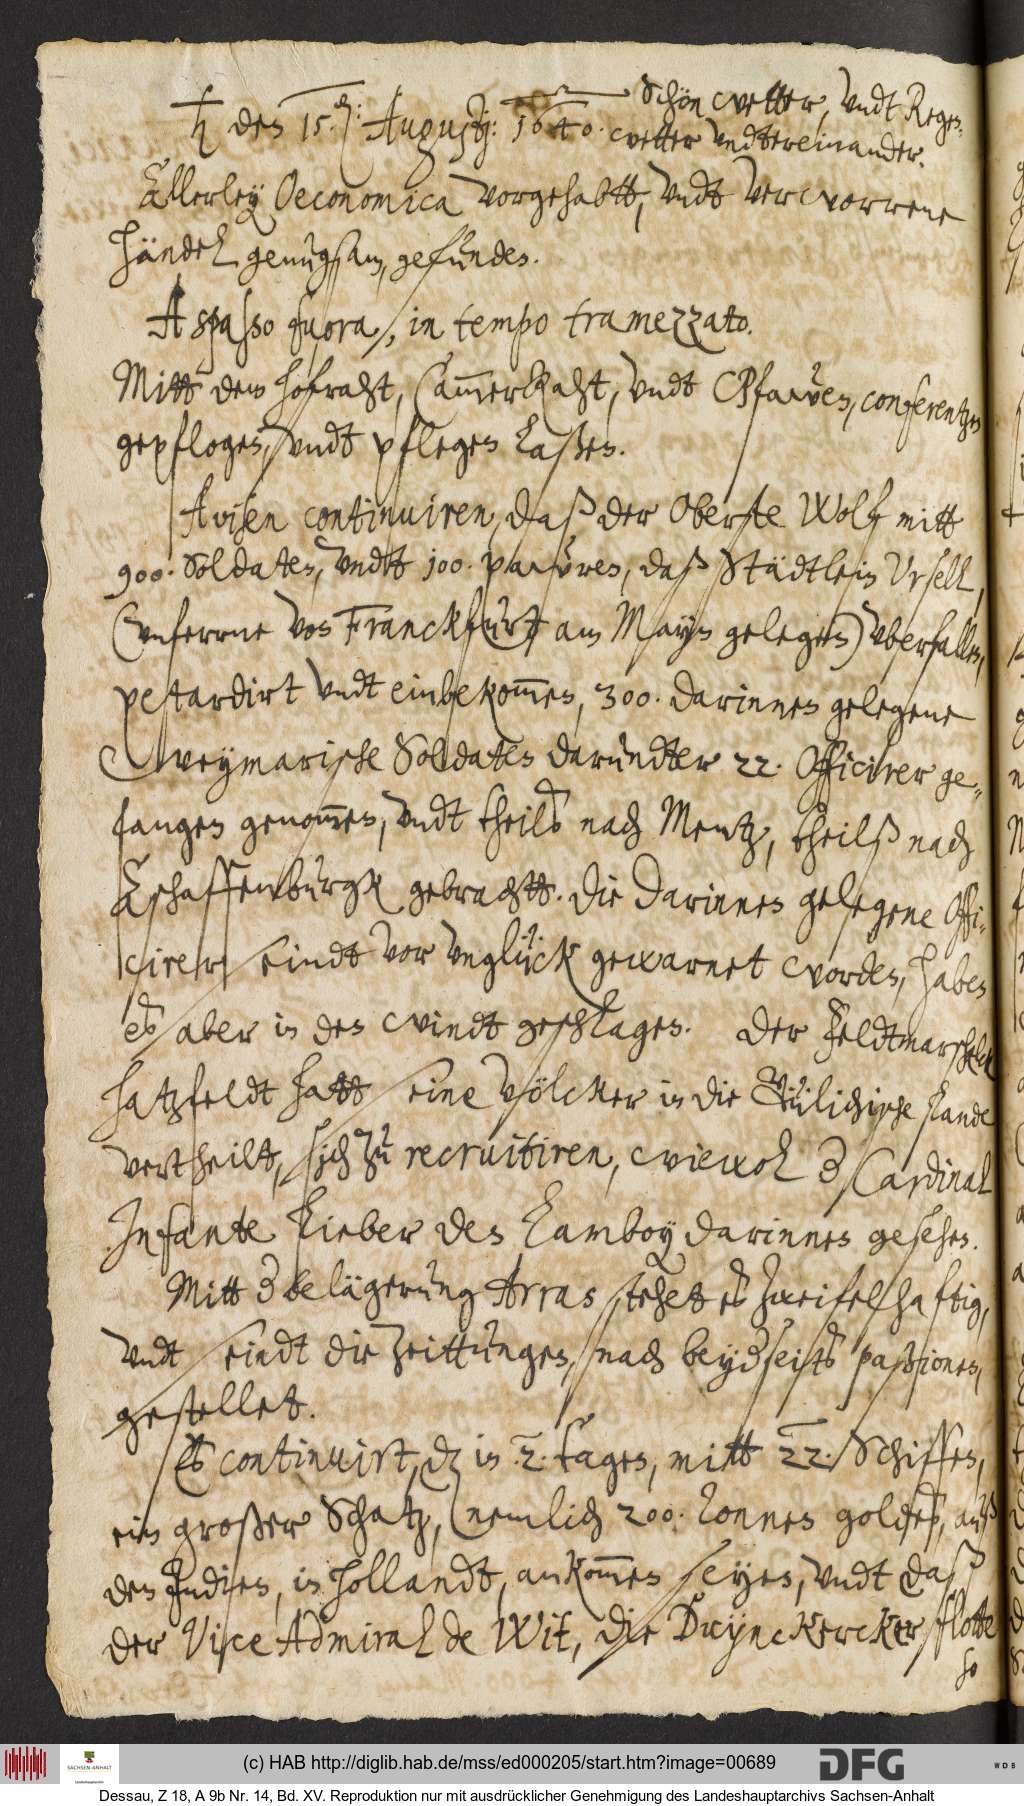 ħ den 15.den: Augustij: 1640. Schön wetter, vndt Regen¬
wetter vndtereinander.
Allerley Oeconomica vorgehabtt, vndt verworrene
händel genungsam, gefunden.
A spasso fuora, in tempo tramezzato.
Mitt dem hofraht, CammerRaht, vndt Pfarren, conferentzen
gepflogen, vndt pflegen laßen.
Avisen continuiren, daß der Oberste Wolf mitt
900. Soldaten, vndtt 100. pawren, daß Städtlein Vrsell,
(vnferrne von Franckfurtt am Mayn gelegen) vberfallen,
petardirt vndt einbekommen, 300. darinnen gelegene
weymarische Soldaten darundter 22. Officirer ge¬
fangen genommen, vndt theilß nach Mentz, theilß nach
Aschaffenburgk gebrachtt. Die darinnen gelegene Offi¬
cirer seindt vor vnglück gewarnet worden, haben
es aber in den windt geschlagen. Der Feldtmarschalck
Hatzfeldt hatt seine völcker in die Gülichische Lande
vertheilt, sich zu recruitiren, wiewol der Cardinal
Infante lieber den Lamboy darinnen gesehen.
Mitt der belägerung Arras stehet es zweifelhaftig,
vndt seindt die zeittungen, nach beyderseits paßionen,
gestellet.
Es continuirt, daß in 2. tagen, mitt 22. Schiffen,
ein großer Schatz, (nemlich 200. Tonnen goldeß, auß
den Indien, in Hollandt, ankommen seyen, vndt daß
der Vice Admiral de Wit, die Duynckercker flotte
so
(c) HAB http://diglib.hab.de/mss/ed000205/start.htm?image=00689
SACHSEN-ANHALT
DFG
WDB
Dessau, Z 18, A 9b Nr. 14, Bd. XV. Reproduktion nur mit ausdrücklicher Genehmigung des Landeshauptarchivs Sachsen-Anhalt